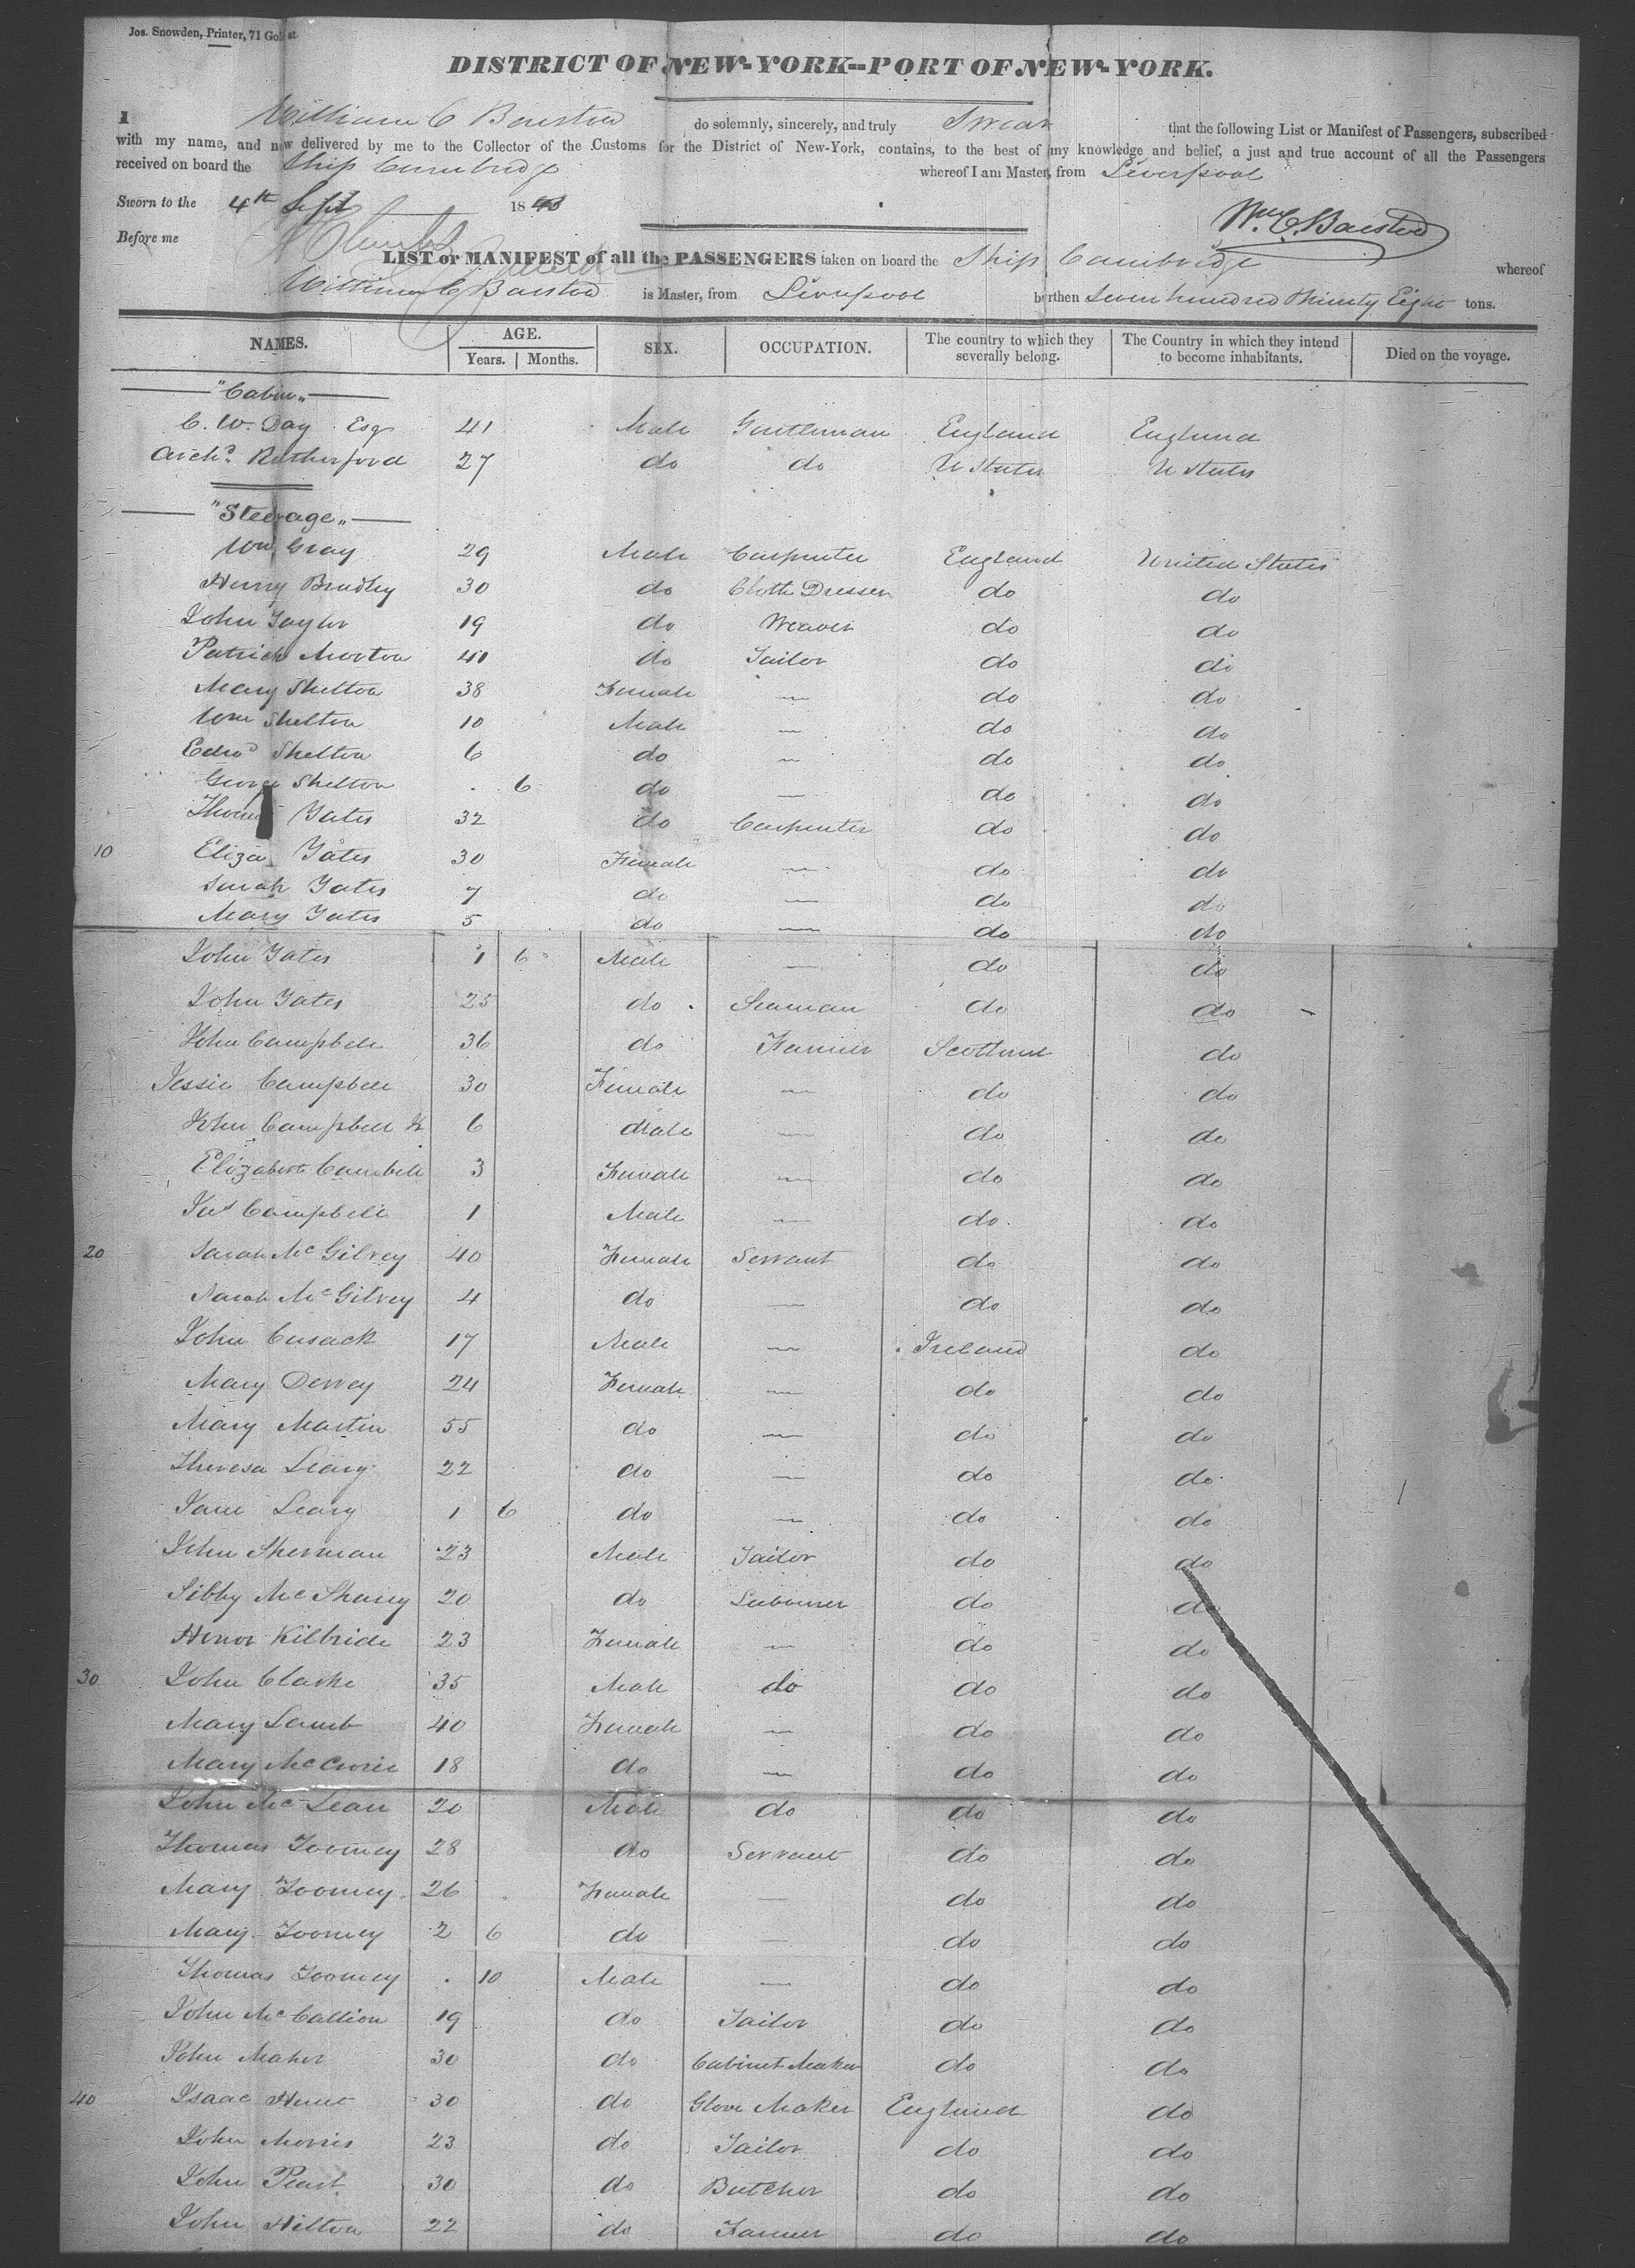 Jos. Snowden, Printer, 71 Gold st.
DISTRICT OF NEW-YORK--PORT OF NEW-YORK.
I William C Barstow do solemnly, sincerely, and truly Swear that the following List or Manifest of Passengers, subscribed
with my name, and now delivered by me to the Collector of the Customs for the District of New-York, contains, to the best of my knowledge and belief, a just and true account of all the Passengers
received on board the Ship Cambridge whereof I am Master, from Liverpool
Sworn to the 4th Sept 18
Wm C. Barstow
Before me
LIST or MANIFEST of all the PASSENGERS taken on board the Ship Cambridge whereof
William C Barstow is Master, from Liverpool burthen Seven hundred Thirty Eight tons.
NAMES. AGE. SEX. OCCUPATION. The country to which they severally belong. The Country in which they intend to become inhabitants. Died on the voyage.
Years. Months.
"Cabin"
C. W. Day Esq 41 Male Gentleman England England
Archd. Rutherford 27 do do U States U States
"Steerage"
Wm Gray 29 Male Carpenter England United States
Henry Bradley 30 do Cloth Dresser do do
John Taylor 19 do Weaver do do
Patrick Morton 40 do Tailor do do
Mary Shelton 38 Female — do do
Wm Shelton 10 Male — do do
Edwd Shelton 6 do — do do
George Shelton . 6 do — do do
Thomas Yates 32 do Carpenter do do
10 Eliza Yates 30 Female — do do
Sarah Yates 7 do — do do
Mary Yates 5 do — do do
John Yates 1 6 Male — do do
John Yates 25 do Seaman do do
John Campbell 36 do Farmer Scotland do
Jessie Campbell 30 Female — do do
John Campbell Jr 6 Male — do do
Elizabeth Cambell 3 Female — do do
Jas Campbell 1 Male — do do
20 Sarah McGilvey 40 Female Servant do do
Sarah McGilvey 4 do — do do
John Cusack 17 Male — Ireland do
Mary Dervey 24 Female — do do
Mary Martin 55 do — do do
Theresa Leary 22 do — do do
Jane Leary 1 6 do — do do
John Sherman 23 Male Tailor do do
Sibby McSharry 20 do Labourer do do
Honor Kilbride 23 Female — do do
30 John Clarke 35 Male do do do
Mary Lamb 40 Female — do do
Mary McCrorie 18 do — do do
John McLean 20 Male do do do
Thomas Toomey 28 do Servant do do
Mary Toomey 26 Female — do do
Mary Toomey 2 6 do — do do
Thomas Toomey . 10 Male — do do
John McCallion 19 do Tailor do do
John Maher 30 do Cabinet Maker do do
40 Isaac Hunt 30 do Glove Maker England do
John Morris 23 do Tailor do do
John Peart 30 do Butcher do do
John Hilton 22 do Farmer do do